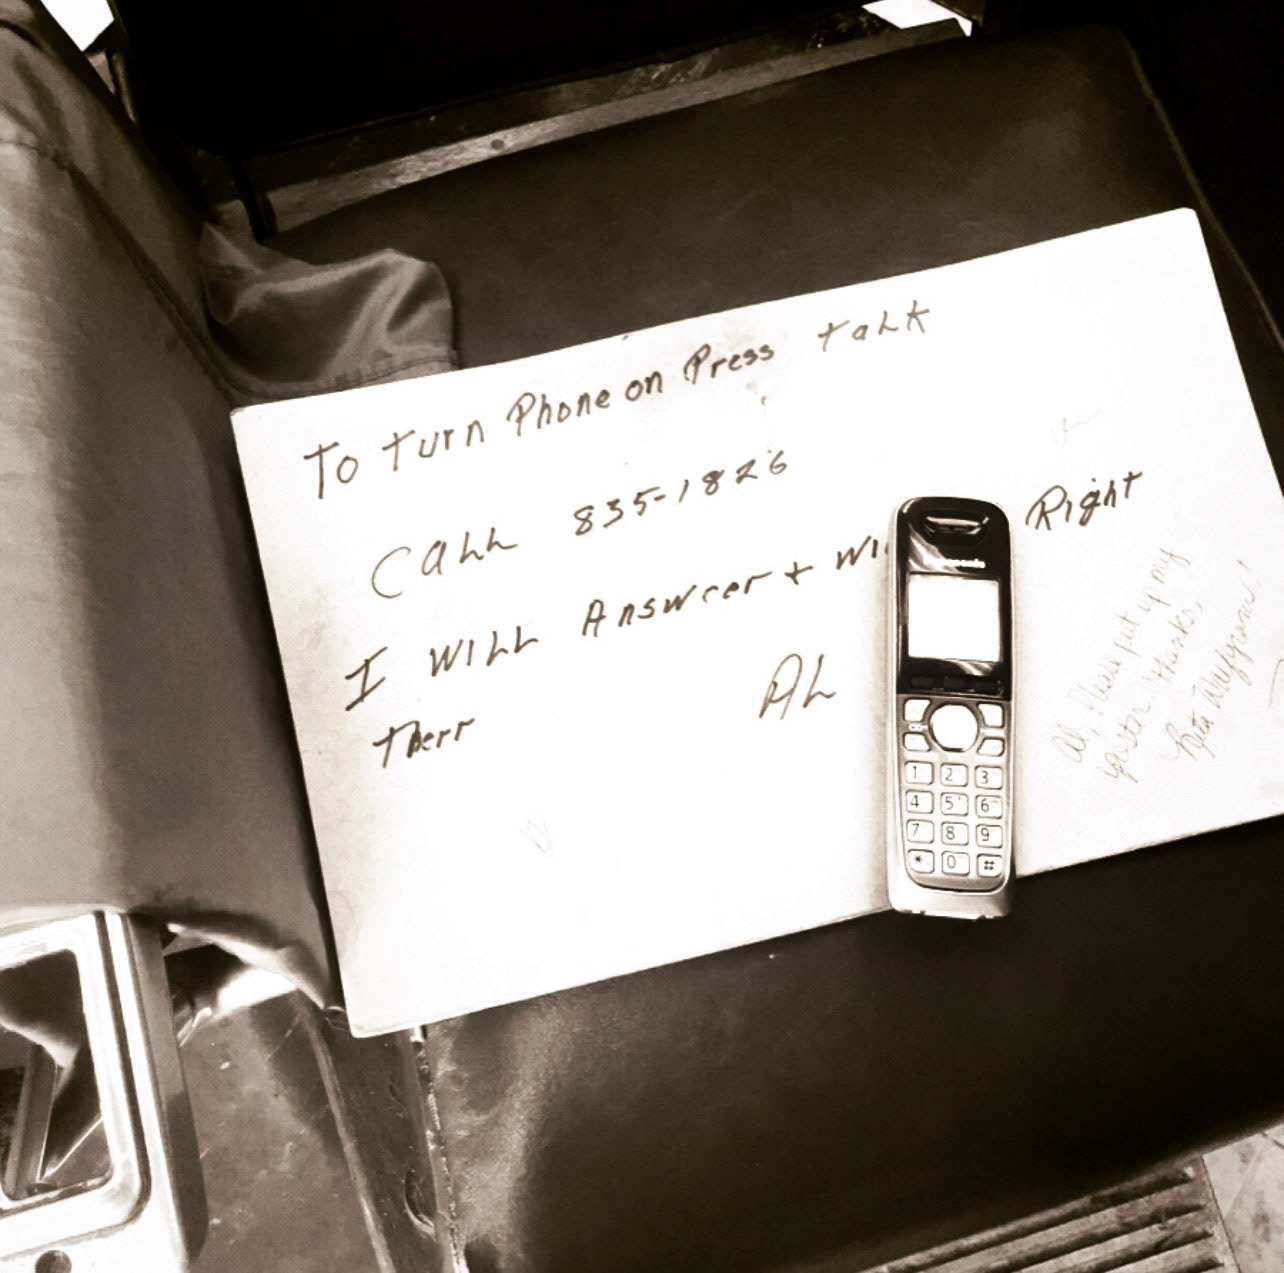 To turn Phone on Press talk
CALL 835-1826
I WILL Answeer + Wi Right
Therr
AL
Al, Please put up my
poster. Thanks,
Rita
1 2 3
4 5 6
7 8 9
* 0 #